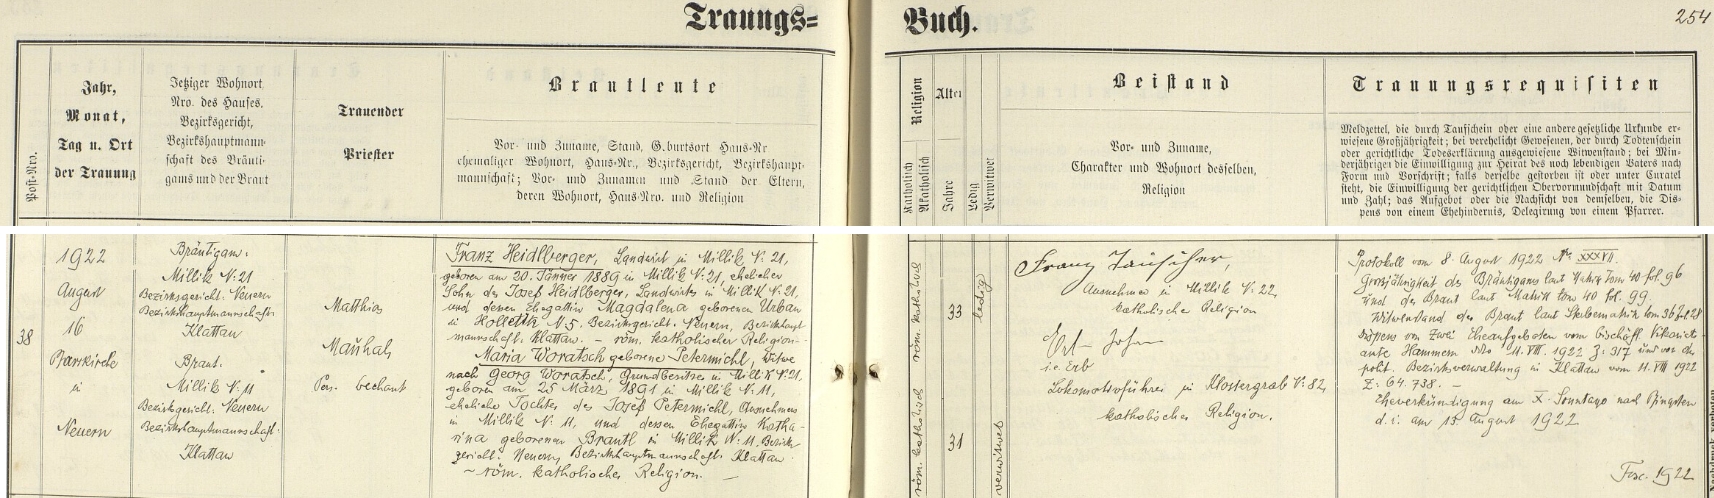 Trauungs=
Buch.
254
Post-Nro.
Jahr,
Monat,
Tag u. Ort
der Trauung
Jetziger Wohnort
Nro. des Hauses,
Bezirksgericht,
Bezirkshauptmann-
schaft des Bräuti-
gams und der Braut
Trauender
Priester
Brautleute
Vor- und Zuname, Stand, Geburtsort Haus-Nr
ehemaliger Wohnort, Haus-Nr., Bezirksgericht, Bezirkshaupt-
mannschaft; Vor- und Zunamen und Stand der Eltern,
deren Wohnort, Haus-Nro. und Religion
Religion
Katholisch
Akatholisch
Alter
Jahre
Ledig
Verwitwet
Beistand
Vor- und Zuname,
Charakter und Wohnort desselben,
Religion
Trauungsrequisiten
Meldzettel, die durch Taufschein oder eine andere gesetzliche Urkunde er-
wiesene Großjährigkeit; bei verehelicht Gewesenen, der durch Todtenschein
oder gerichtliche Todeserklärung ausgewiesene Witwenstand; bei Min-
derjährigen die Einwilligung zur Heirat des noch lebendigen Vaters nach
Form und Vorschrift; falls derselbe gestorben ist oder unter Curatel
steht, die Einwilligung der gerichtlichen Obervormundschaft mit Datum
und Zahl; das Aufgebot oder die Nachsicht von demselben, die Dis-
pens von einem Ehehindernis, Delegirung von einem Pfarrer.
38
1922
August
16
Pfarrkirche
in
Neuern
Bräutigam:
Millik N: 21
Bezirksgericht: Neuern
Bezirkshauptmannschaft:
Klattau
Braut:
Millik N: 11
Bezirksgericht: Neuern
Bezirkshauptmannschaft:
Klattau
Matthias
Mauhal,
Pers. Dechant
Franz Heidlberger, Landwirt in Millik N: 21,
geboren am 20. Jänner 1889 in Millik N: 21, ehelicher
Sohn des Josef Heidlberger, Landwirtes in Millik N: 21,
und dessen Ehegattin Magdalena geborenen Urban
in Kollettk N: 5. Bezirksgericht: Neuern, Bezirkshaupt-
mannschaft: Klattau. – röm. katholischer Religion –
Maria Woratsch geborene Petermichl, Witwe
nach Georg Woratsch, Grundbesitzer in Millik N: 21,
geboren am 25 März 1891 in Millik N: 11,
eheliche Tochter des Josef Petermichl, Ausnehmers
in Millik N: 11, und dessen Ehegattin Katha-
rina geborenen Brantl in Millik N: 11, Bezirks-
gericht: Neuern, Bezirkshauptmannschaft: Klattau.
~ röm. katholische Religion. –
röm. katholisch
33
ledig
röm. katholisch
31
verwitwet
Franz Tauscher,
Ausnehmer in Millik N: 22
katholische Religion
Ert Johann
i.e. Erb
Lokomotivführer in Klostergrab N: 82,
katholischer Religion.
Protokoll vom 8. August 1922 Nr. XXXVII.
Großjährigkeit des Bräutigams laut Matrik tom 40 fol. 96
und der Braut laut Matrik tom 40 fol. 99
Witwenstand der Braut laut Sterbematrik tom 36
Dispens von zwei Eheaufgeboten vom bischöfl. Vikariat-
amte Hammern ddto 11. VIII. 1922 Z: 317 und von der
polit. Bezirksverwaltung in Klattau vom 11. VIII 1922
Z: 64.738. –
Eheverkündigung am X. Sonntage nach Pfingsten
d. i. am 13. August 1922
Fasc. 1922